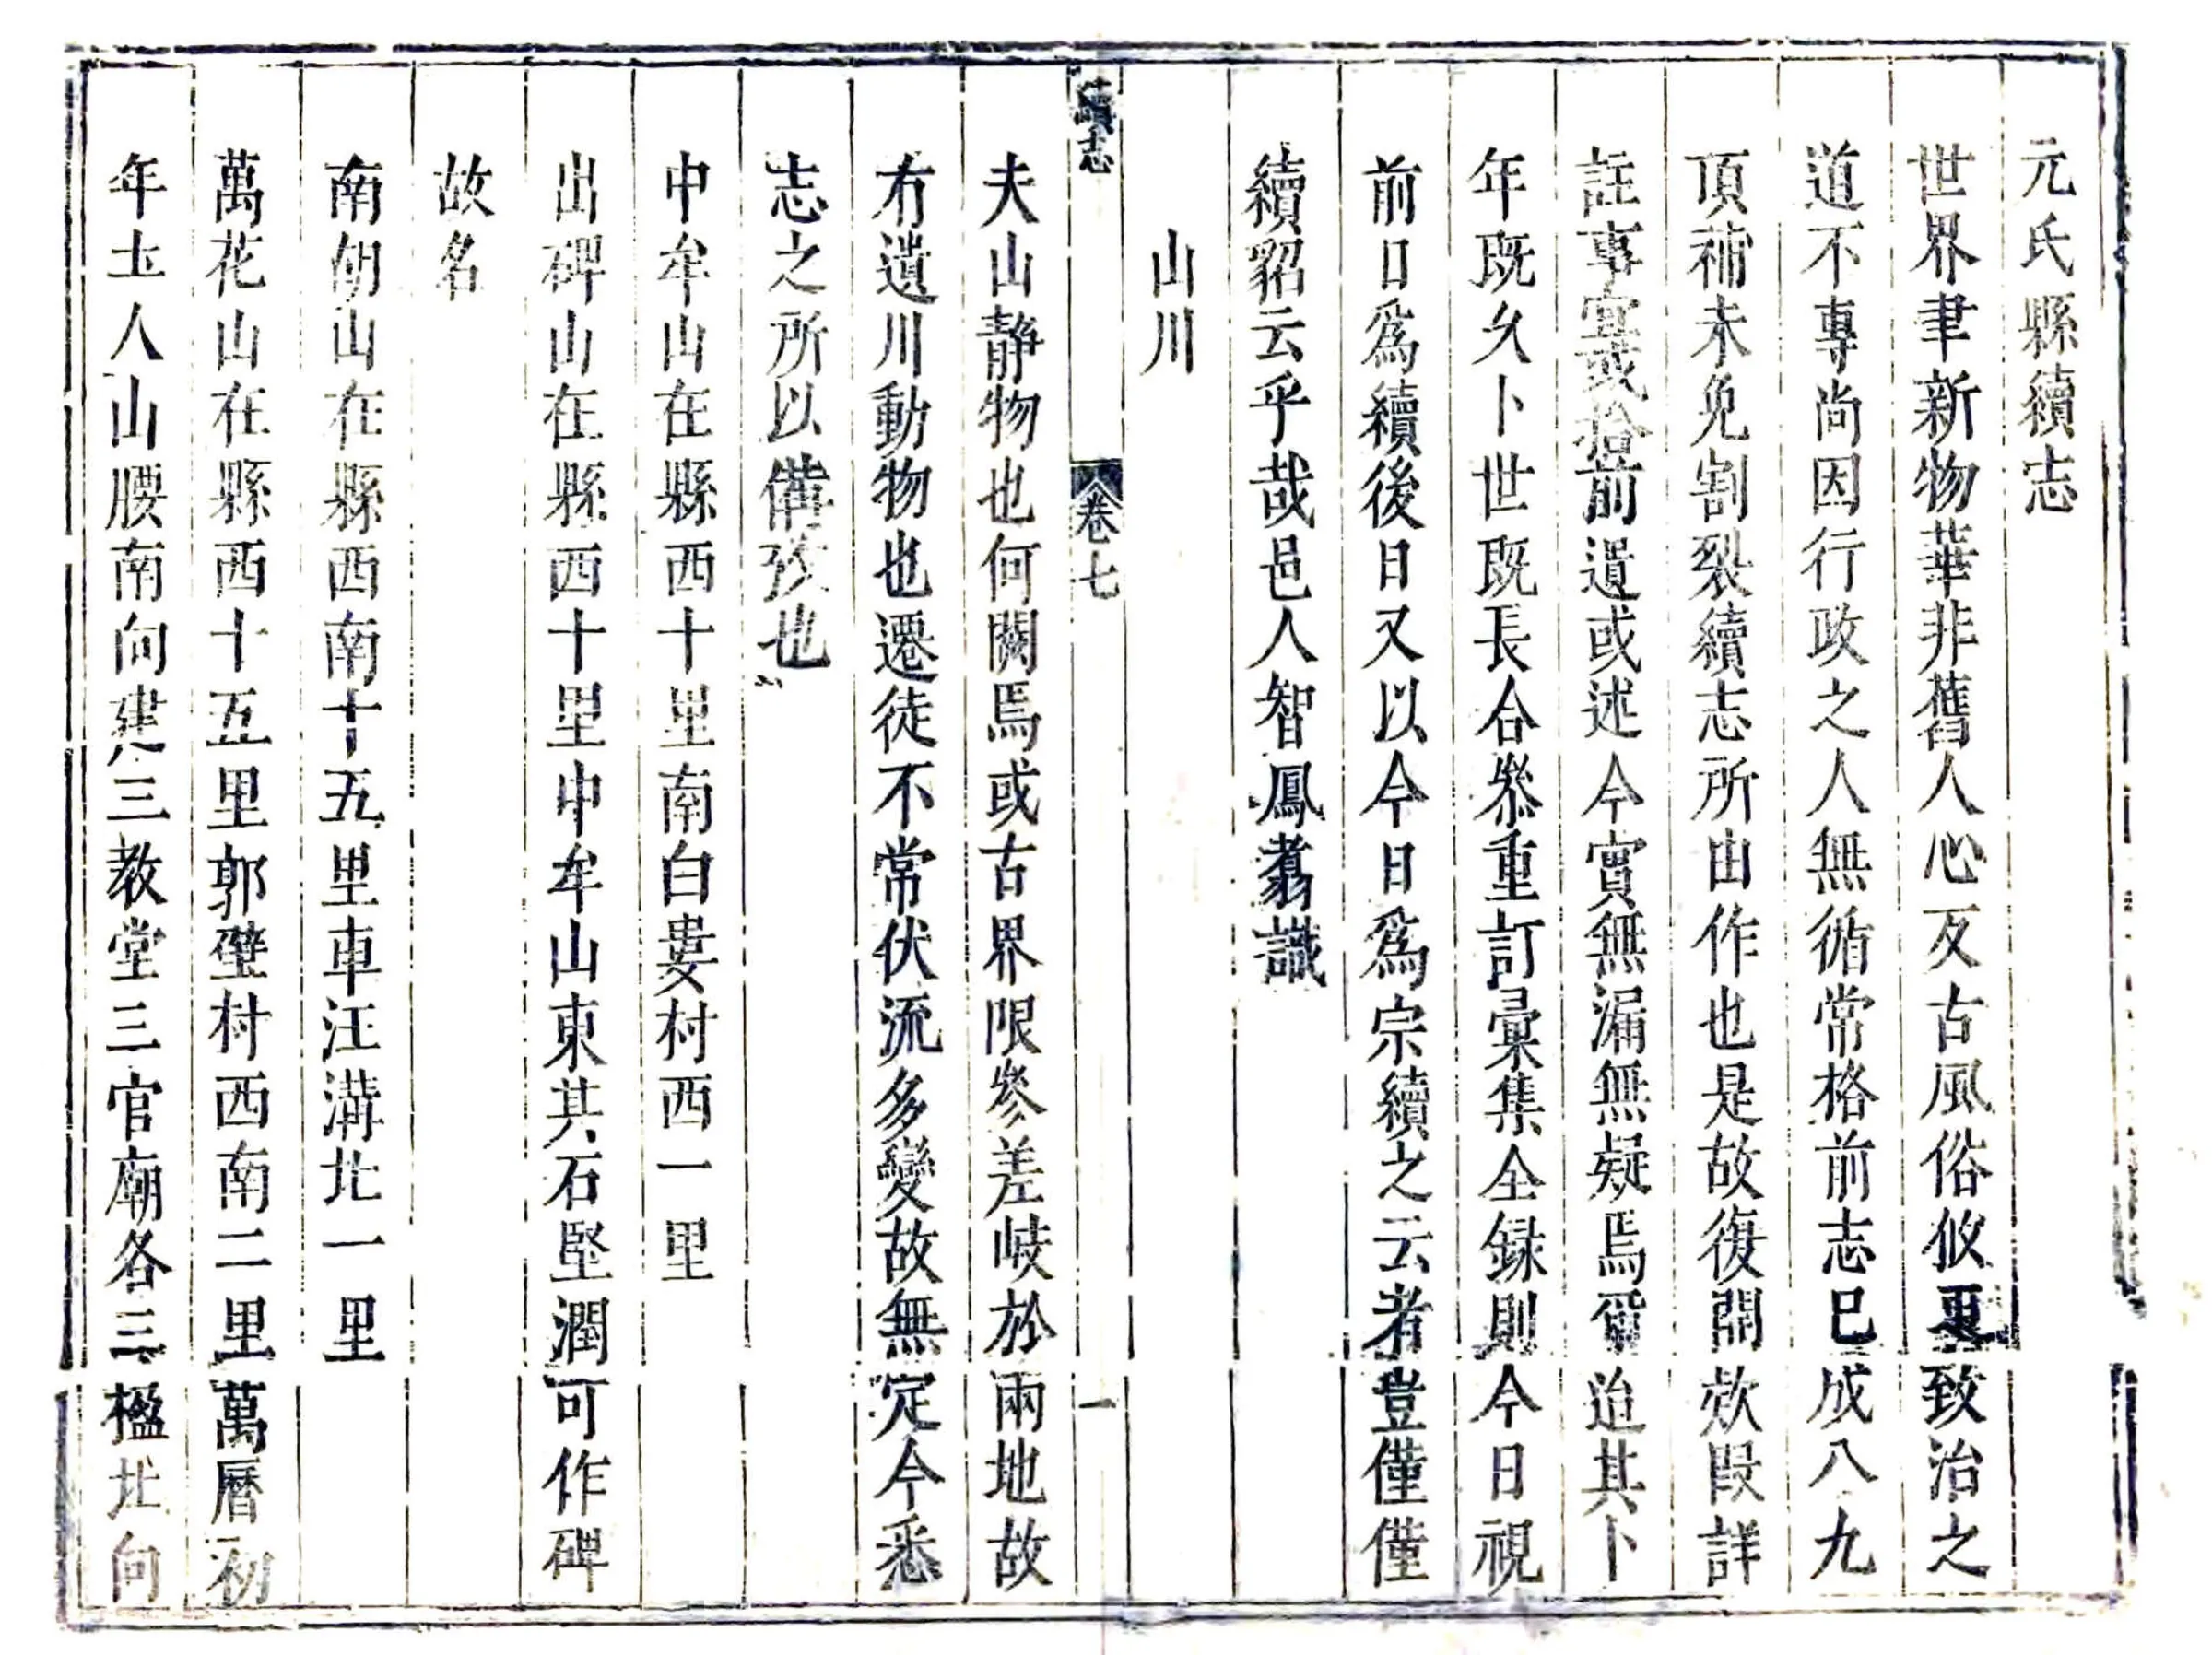 元氏縣續志
世界聿新物華非舊人心反古風俗攸更致治之
道不專尚因行政之人無循常格前志已成八九
頂補未免割裂續志所由作也是故復開欵叚詳
註事宜或拾前遺或述今實無漏無疑焉爾迨其卜
年既久卜世既長合叅重訂彙集全録則今日視
前日爲續後日又以今日爲宗續之云者豈僅僅
續貂云乎哉邑人智鳳翥識
山川
續志 卷七 一
夫山靜物也何闕焉或古界限參差岐於兩地故
有遺川動物也遷徒不常伏流多變故無定今悉
志之所以備攷也
中牟山在縣西十里南白婁村西一里
出碑山在縣西十里中牟山東其石堅潤可作碑
故名
南朝山在縣西南十五里車汪溝北一里
萬花山在縣西十五里郭壁村西南二里萬曆初
年土人山腰南向建三教堂三官廟各三楹北向